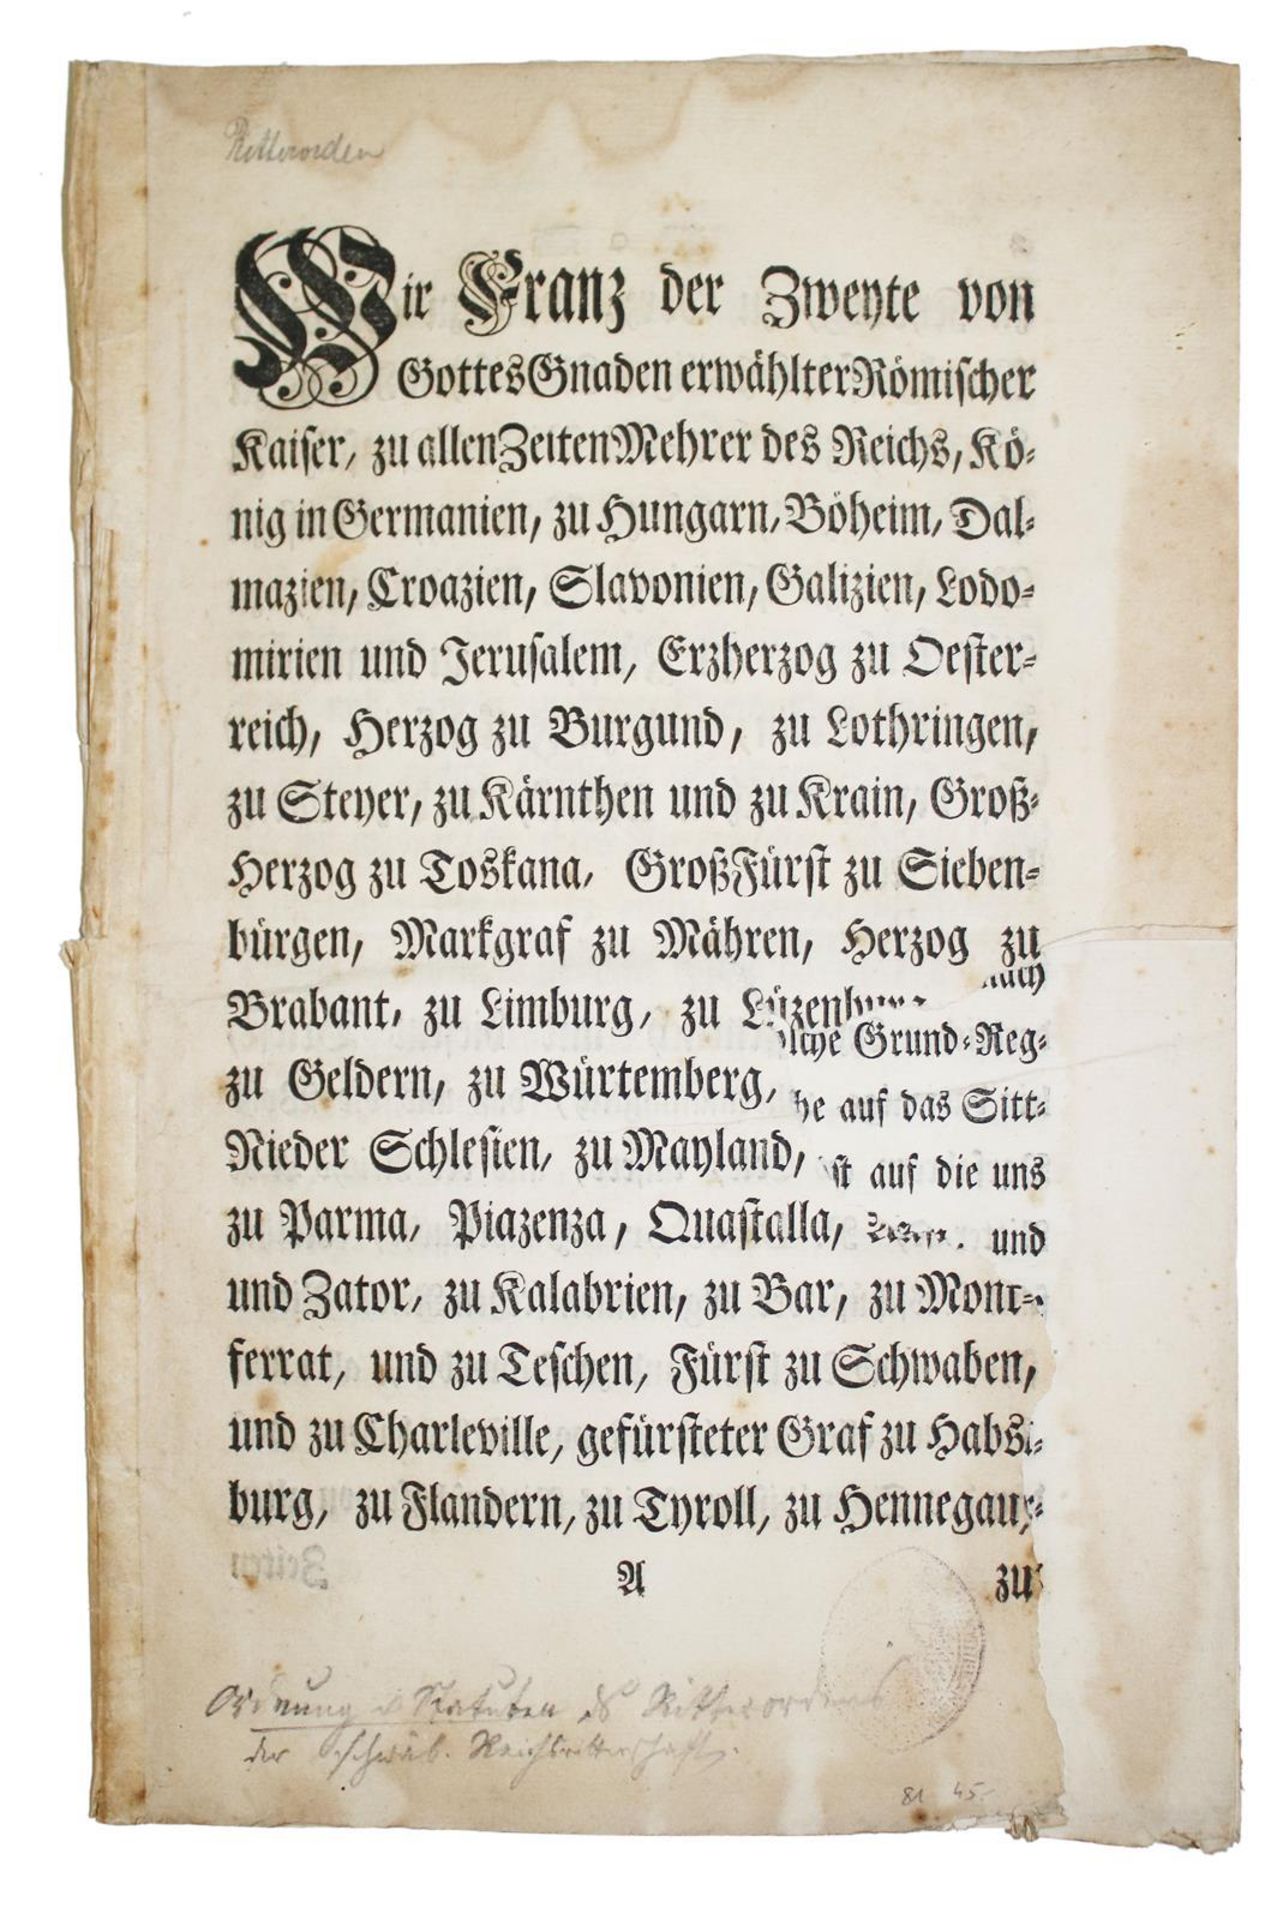 Ritterorden
Wir Franz der Zweyte von
Gottes Gnaden erwählter Römischer
Kaiser, zu allen Zeiten Mehrer des Reichs, Kö-
nig in Germanien, zu Hungarn, Böheim, Dal-
mazien, Croazien, Slavonien, Galizien, Lodo-
mirien und Jerusalem, Erzherzog zu Oester-
reich, Herzog zu Burgund, zu Lothringen,
zu Steyer, zu Kärnthen und zu Krain, Groß-
Herzog zu Toskana, GroßFürst zu Sieben-
bürgen, Markgraf zu Mähren, Herzog zu
Brabant, zu Limburg, zu Lüzenburg
Grund-Reg-
zu Geldern, zu Würtemberg,
auf das Sitt-
Nieder Schlesien, zu Mayland,
auf die uns
zu Parma, Piazenza, Quastalla,
und
und Zator, zu Kalabrien, zu Bar, zu Mont-
ferrat, und zu Teschen, Fürst zu Schwaben,
und zu Charleville, gefürsteter Graf zu Habs-
burg, zu Flandern, zu Tyroll, zu Hennegau,
A zu
Ordnung Statuten Ritterordens
der schwäb. Reichsritterschaft.
81 45.-